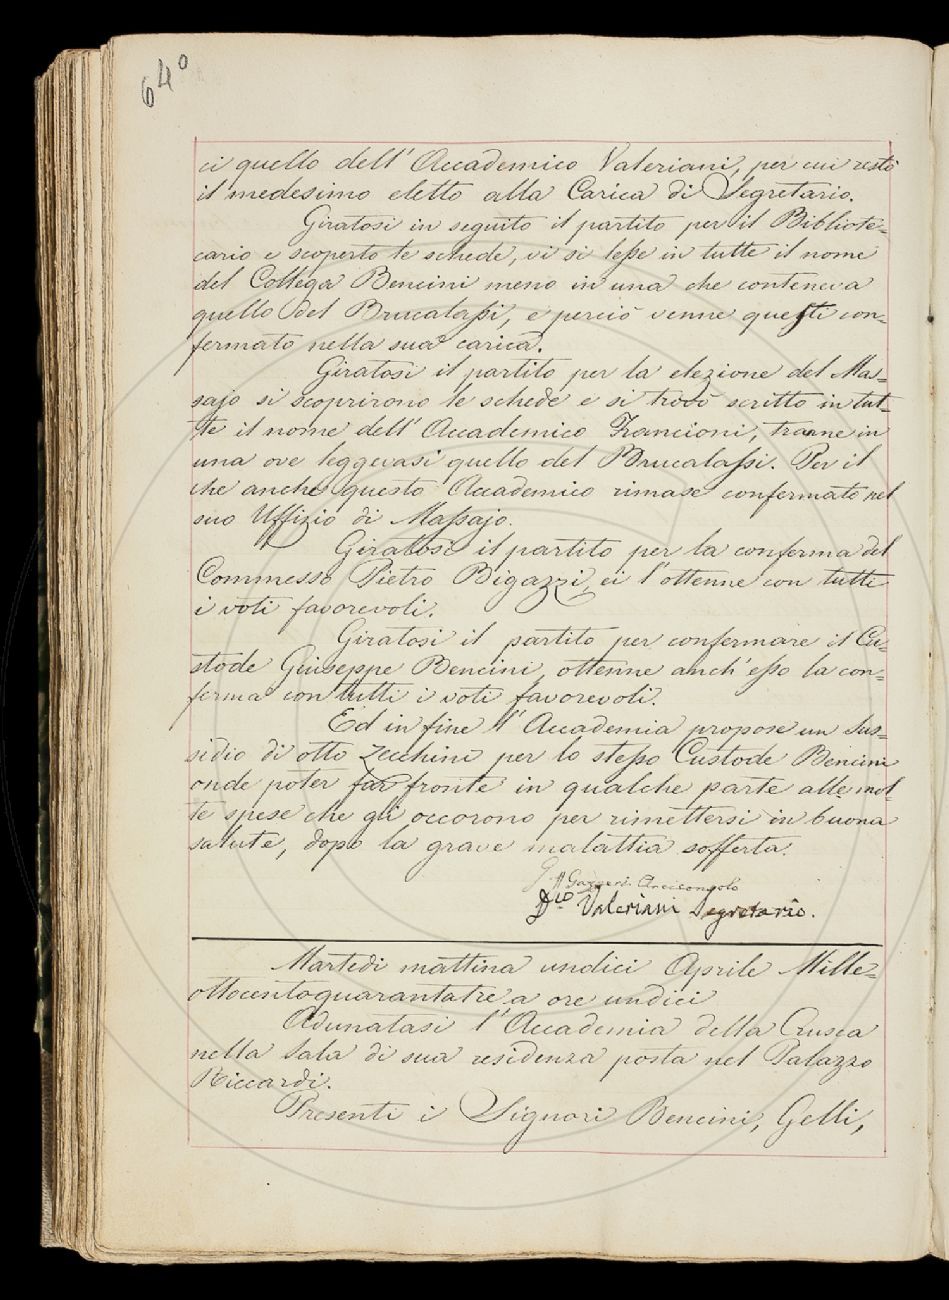 640
ci quello dell'Accademico Valeriani, per cui restò
il medesimo eletto alla Carica di Segretario.
Giratosi in seguito il partito per il Bibliote=
cario e scoperto le schede, vi si lesse in tutte il nome
del Collega Bencini meno in una che conteneva
quello del Brucalassi, e perciò venne questi con=
fermato nella sua carica.
Giratosi il partito per la elezione del Mas=
sajo si scoprirono le schede e si trovò scritto in tut=
te il nome dell'Accademico Francioni, tranne in
una ove leggevasi quello del Brucalassi. Per il
che anche questo Accademico rimase confermato nel
suo Uffizio di Massajo.
Giratosi il partito per la conferma del
Commesso Pietro Bigazzi, ei l'ottenne con tutti
i voti favorevoli.
Giratosi il partito per confermare il Cu=
stode Giuseppe Bencini, ottenne anch'esso la con=
ferma con tutti i voti favorevoli.
Ed in fine l'Accademia propose un sus=
sidio di otto zecchini per lo stesso Custode Bencini
onde poter far fronte in qualche parte alle mol=
te spese che gli occorono per rimettersi in buona
salute, dopo la grave malattia sofferta.
G. Gazzeri Arciconsolo
Dco Valeriani Segretario.
Martedi mattina undici Aprile Mille=
ottocentoquarantatre a ore undici
Adunatasi l'Accademia della Crusca
nella Sala di sua residenza posta nel Palazzo
Riccardi.
Presenti i Signori Bencini, Gelli,